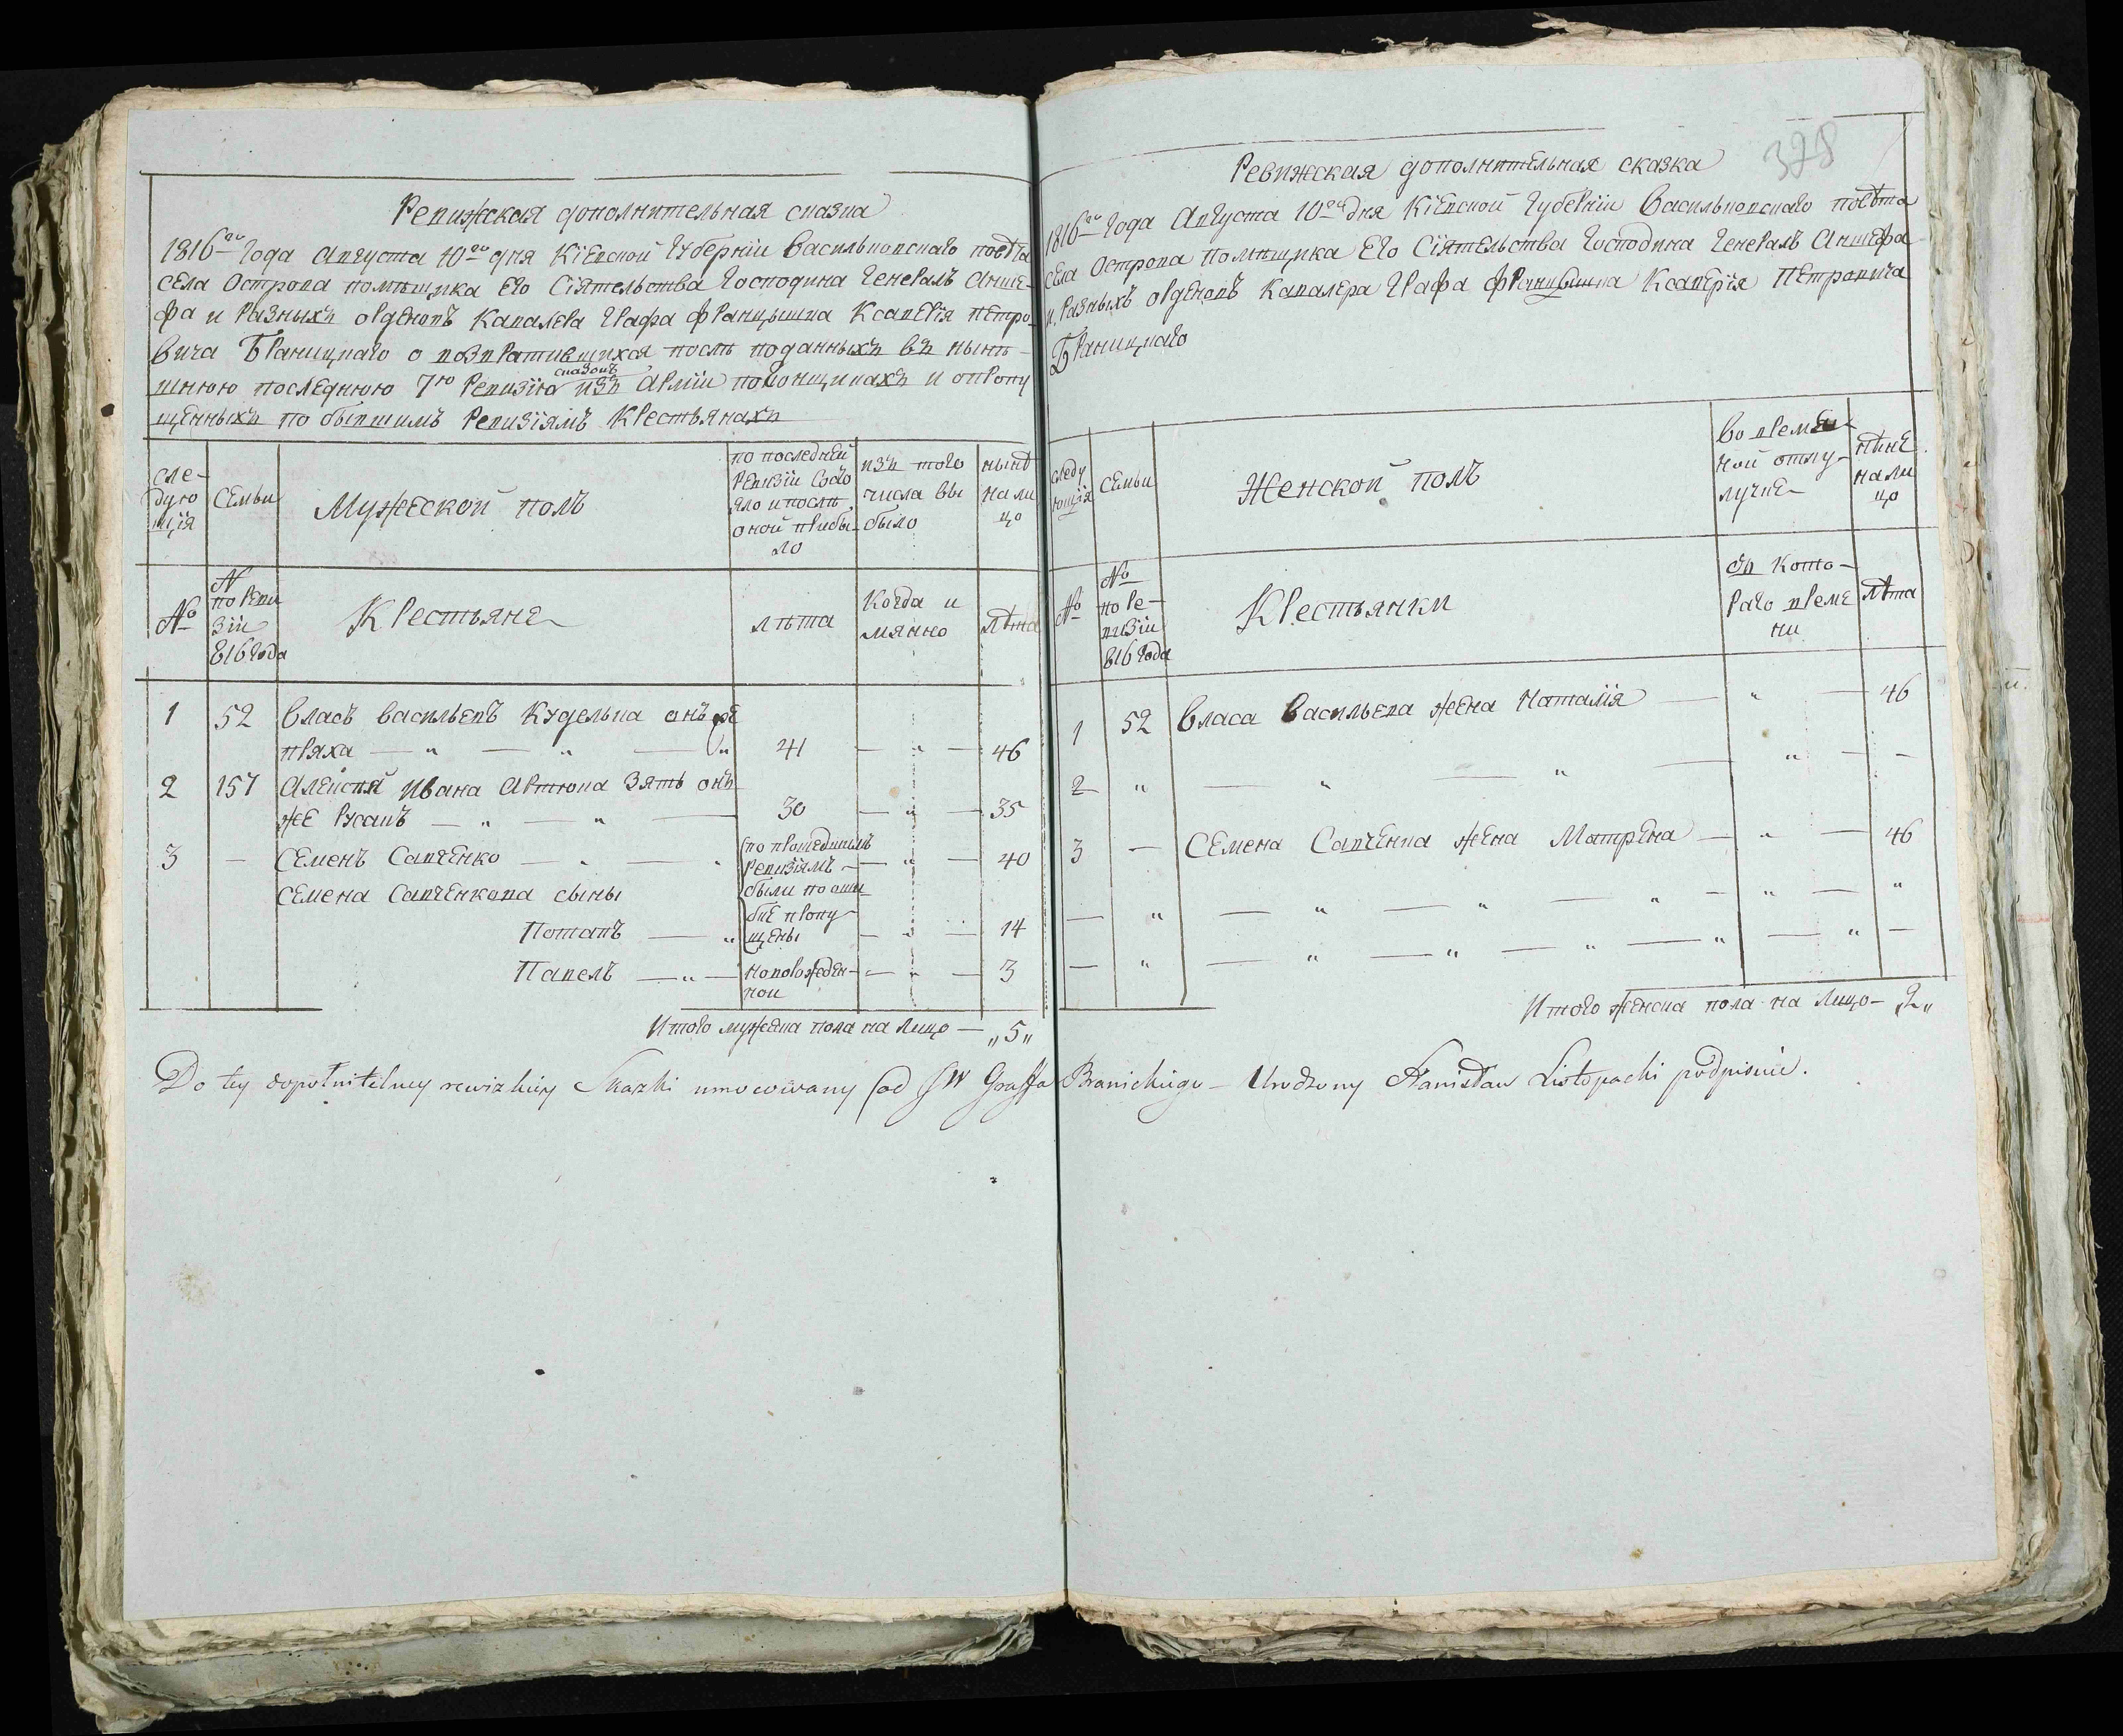 Ревижская дополнительная сказка
1816го года Августа 10го дня Кіевской Губерніи Васильковскаго повѣта
села Острова помѣщика Его Сіятельства Господина Генералъ Анше-
фа и разныхъ орденовъ Кавалера Графа Францышка Ксаверія Петро-
вича Браницкаго о возвратившихся послѣ поданныхъ въ нынѣ-
сказокъ
шнюю последнюю 7ю Ревизію изъ Арміи погонщикахъ и опропу
щенныхъ по бывшимъ Ревизіямъ Крестьянахъ
сле-
дую
щія
Семьи
Мужеской полъ
по последней
ревизіи состо
яло и послѣ
оной прибы-
ло
изъ того
числа вы
было
нынѣ
на ли
цо
№
№
по Реви
зіи
816 года
Крестьяне
лѣта
Когда и
мянно
лѣта
1 52 Власъ Васильевъ Куделька онъ же
пряха — „ — „ — „ 41 — „ — 46
2 157 Алексѣй Ивана Автюка Зять онъ
же Русанъ — „ — „ — 30 — „ — 35
3 — Семенъ Савченко — „ — „ по прошедшимъ
Ревизіямъ — „ — 40
Семена Савченкова сыны были по оши
бке пропу-
Потапъ — „ щены — „ — 14
Павелъ — „ — новорожден- — „ — 3
нои
Итого мужеска пола на лицо — „5„
Ревижская дополнительная сказка
378
1816го года Августа 10го дня Кіевской Губерніи Васильковскаго повѣта
села Острова помѣщика Его Сіятельства Господина Генералъ Аншефа
и разныхъ орденовъ Кавалера Графа Францышка Ксаверія Петровича
Браницкаго
следу
ющія
Семьи
Женской полъ
Во времен-
ной отлу-
лучке
нѣне
на ли
цо
№
№
по Ре-
визіи
816 года
Крестьянки
Съ Кото-
раго време
ни
лѣта
1 52 Власа Васильева жена Наталія — „ — 46
2 „ — „ — „ — „ — -
3 — Семена Савченка жена Матрена — „ — 46
— „ — „ — „ — „ — „ — „
— „ — „ — „ — „ — „ — „ —
Итого женска пола на лицо — „2„
Do tey dopołnitelney rewizkiey Skazki umocowany od JW Graffa Branickiego — Urodzony Stanisław Listopacki podpisuie.